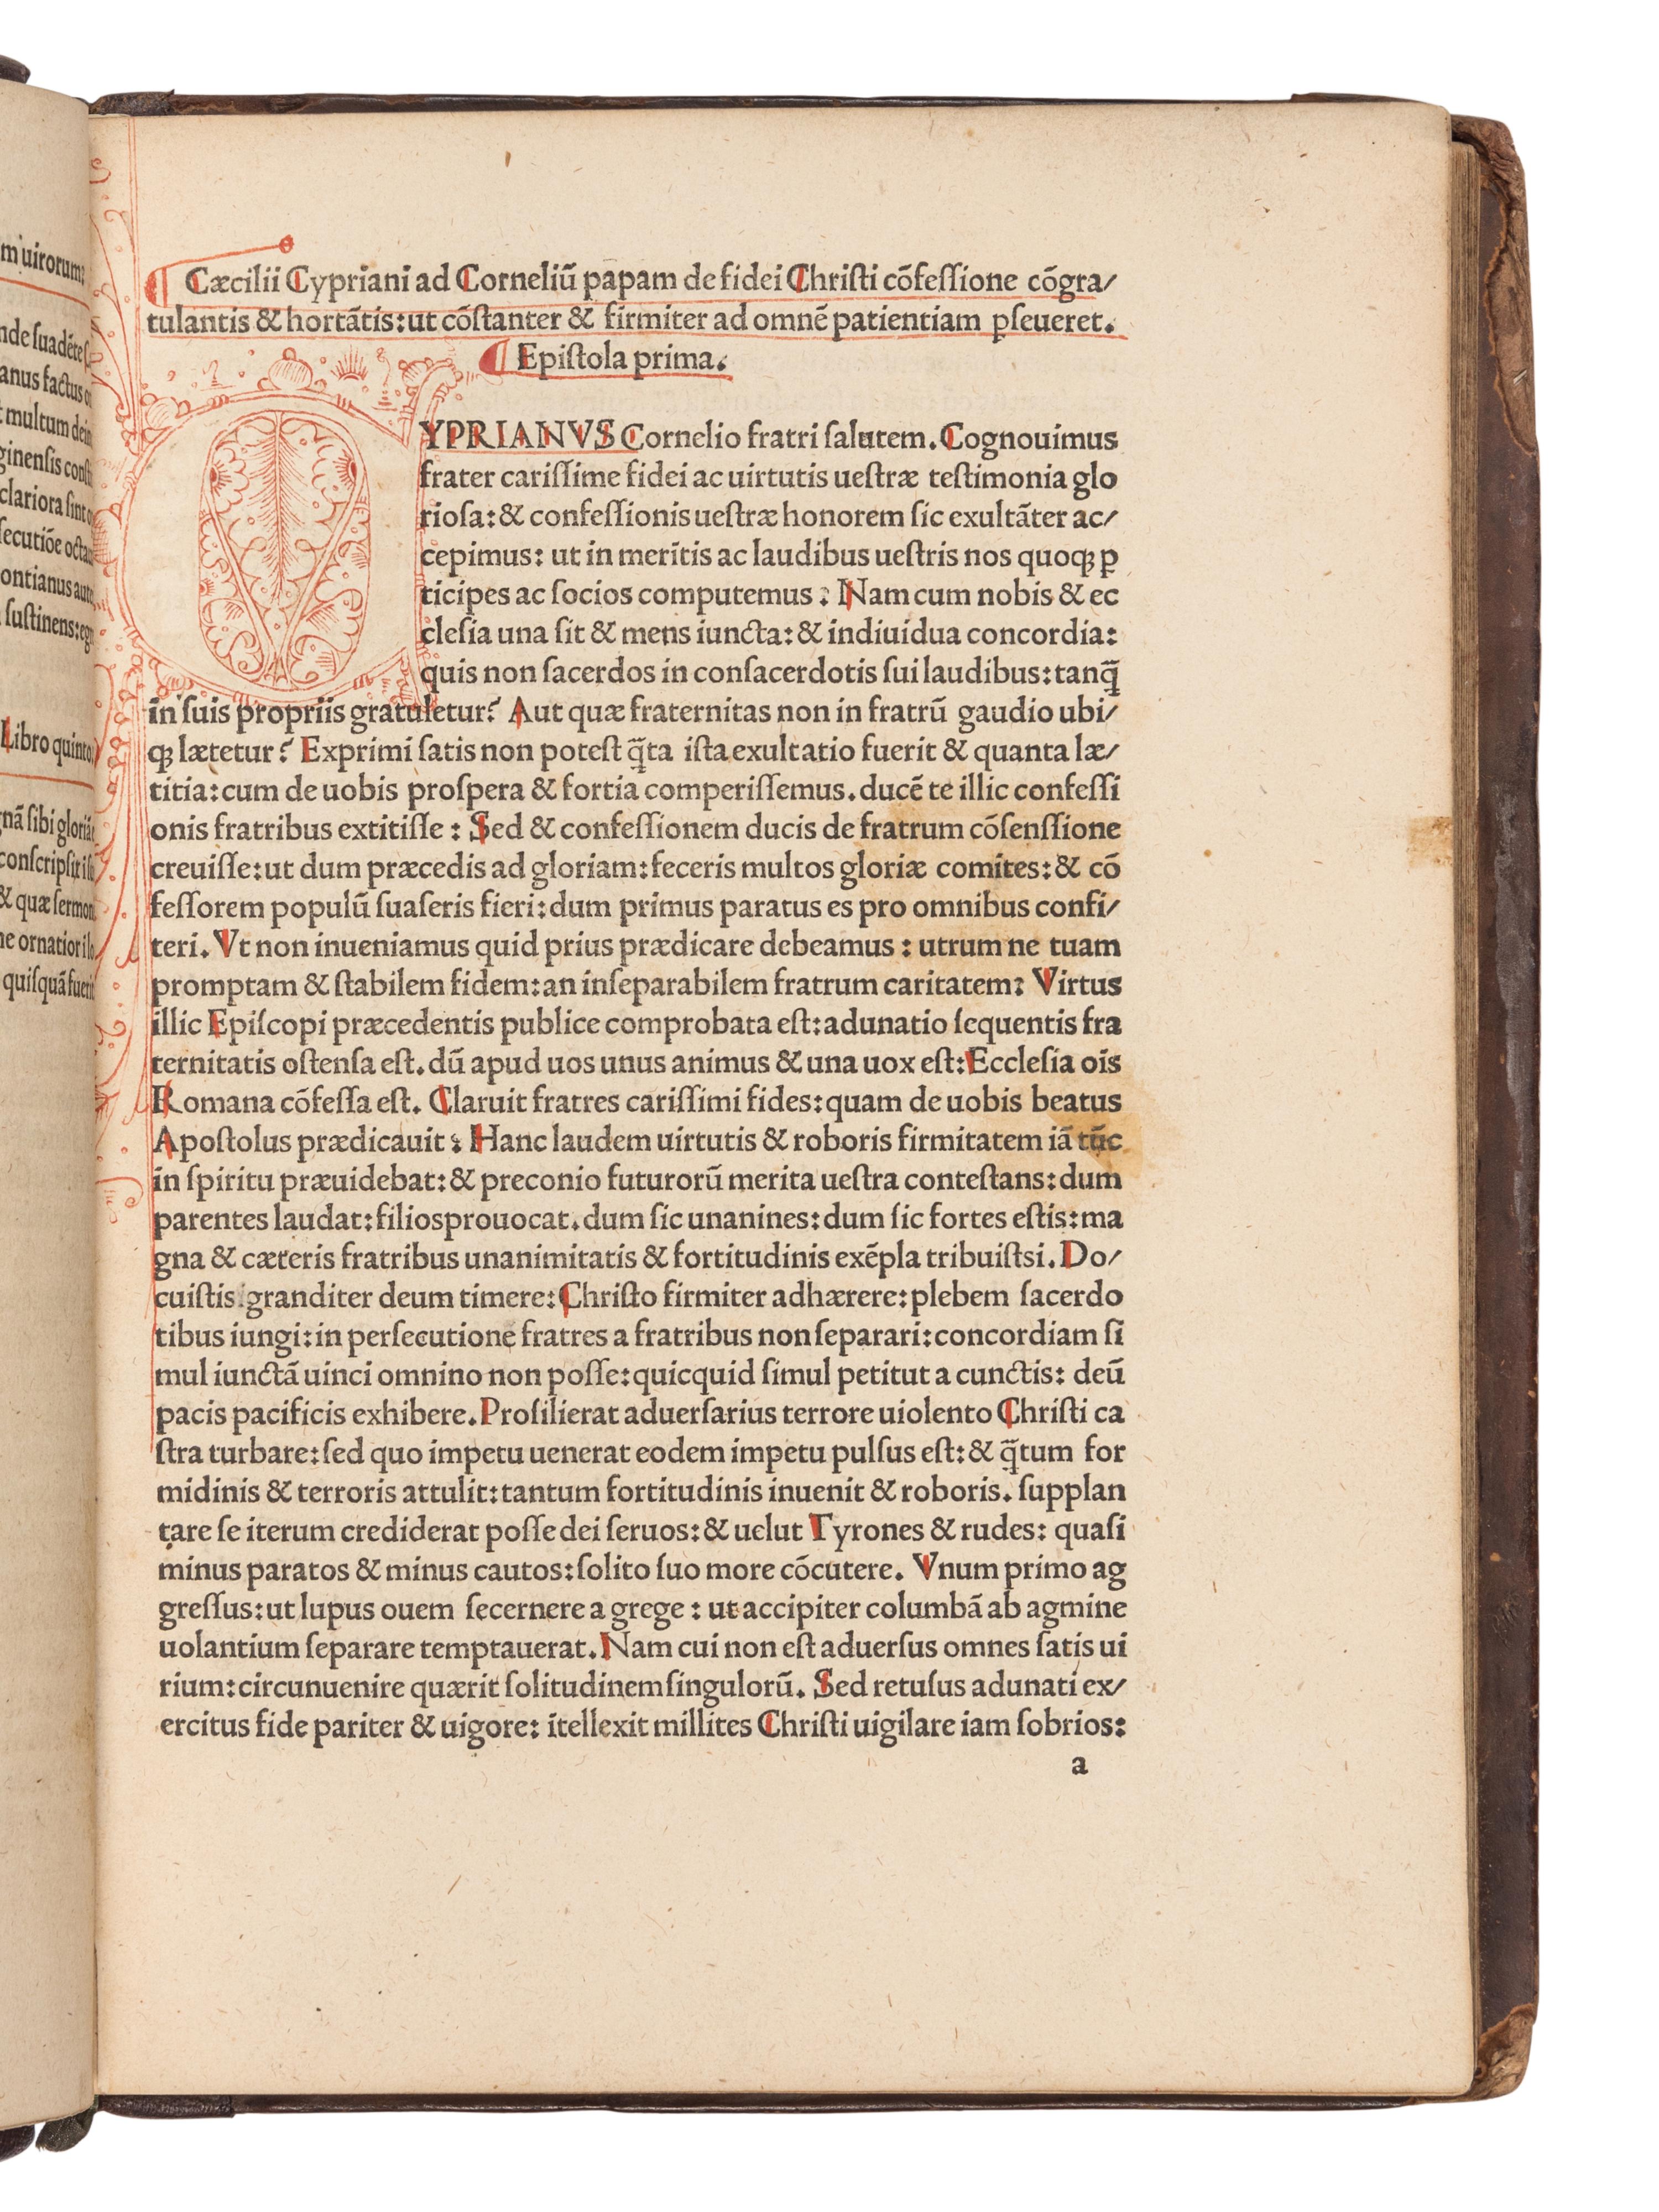 m uirorum:
nde suadēte
anus factus
multum dein
ginensis
clariora sint
secutiōe octau
ontianus
sustinens:
Libro quinto.
nā sibi gloriā
conscripsit
& quæ sermon
ne ornatior
quisquā fuerit
Cæcilii Cypriani ad Corneliū papam de fidei Christi cōfessione cōgra/
tulantis & hortātis: ut cōstanter & firmiter ad omnē patientiam ꝑseueret.
Epistola prima.
YPRIANVS Cornelio fratri salutem. Cognouimus
frater carissime fidei ac uirtutis uestræ testimonia glo
riosa: & confessionis uestræ honorem sic exultāter ac/
cepimus: ut in meritis ac laudibus uestris nos quoqꝫ ꝑ
ticipes ac socios computemus: Nam cum nobis & ec
clesia una sit & mens iuncta: & indiuidua concordia:
quis non sacerdos in consacerdotis sui laudibus: tanq̄
in suis propriis gratuletur? Aut quæ fraternitas non in fratrū gaudio ubi/
qꝫ lætetur? Exprimi satis non potest q̄ta ista exultatio fuerit & quanta læ/
titia: cum de uobis prospera & fortia comperissemus. ducē te illic confessi
onis fratribus extitisse: Sed & confessionem ducis de fratrum cōsenssione
creuisse: ut dum præcedis ad gloriam: feceris multos gloriæ comites: & cō
fessorem populū suaseris fieri: dum primus paratus es pro omnibus confi/
teri. Vt non inueniamus quid prius prædicare debeamus: utrum ne tuam
promptam & stabilem fidem: an inseparabilem fratrum caritatem: Virtus
illic Episcopi præcedentis publice comprobata est: adunatio sequentis fra
ternitatis ostensa est. dū apud uos unus animus & una uox est: Ecclesia oīs
Romana cōfessa est. Claruit fratres carissimi fides: quam de uobis beatus
Apostolus prædicauit: Hanc laudem uirtutis & roboris firmitatem iā tūc
in spiritu præuidebat: & preconio futurorū merita uestra contestans: dum
parentes laudat: filios prouocat. dum sic unanines: dum sic fortes estis: ma
gna & cæteris fratribus unanimitatis & fortitudinis exēpla tribuistsi. Do/
cuistis granditer deum timere: Christo firmiter adhærere: plebem sacerdo
tibus iungi: in persecutione fratres a fratribus non separari: concordiam si
mul iunctā uinci omnino non posse: quicquid simul petitut a cunctis: deū
pacis pacificis exhibere. Prosilierat aduersarius terrore uiolento Christi ca
stra turbare: sed quo impetu uenerat eodem impetu pulsus est: & q̄tum for
midinis & terroris attulit: tantum fortitudinis inuenit & roboris. supplan
tare se iterum crediderat posse dei seruos: & uelut Tyrones & rudes: quasi
minus paratos & minus cautos: solito suo more cōcutere. Vnum primo ag
gressus: ut lupus ouem secernere a grege: ut accipiter columbā ab agmine
uolantium separare temptauerat. Nam cui non est aduersus omnes satis ui
rium: circunuenire quærit solitudinem singulorū. Sed retusus adunati ex/
ercitus fide pariter & uigore: ītellexit millites Christi uigilare iam sobrios:
a